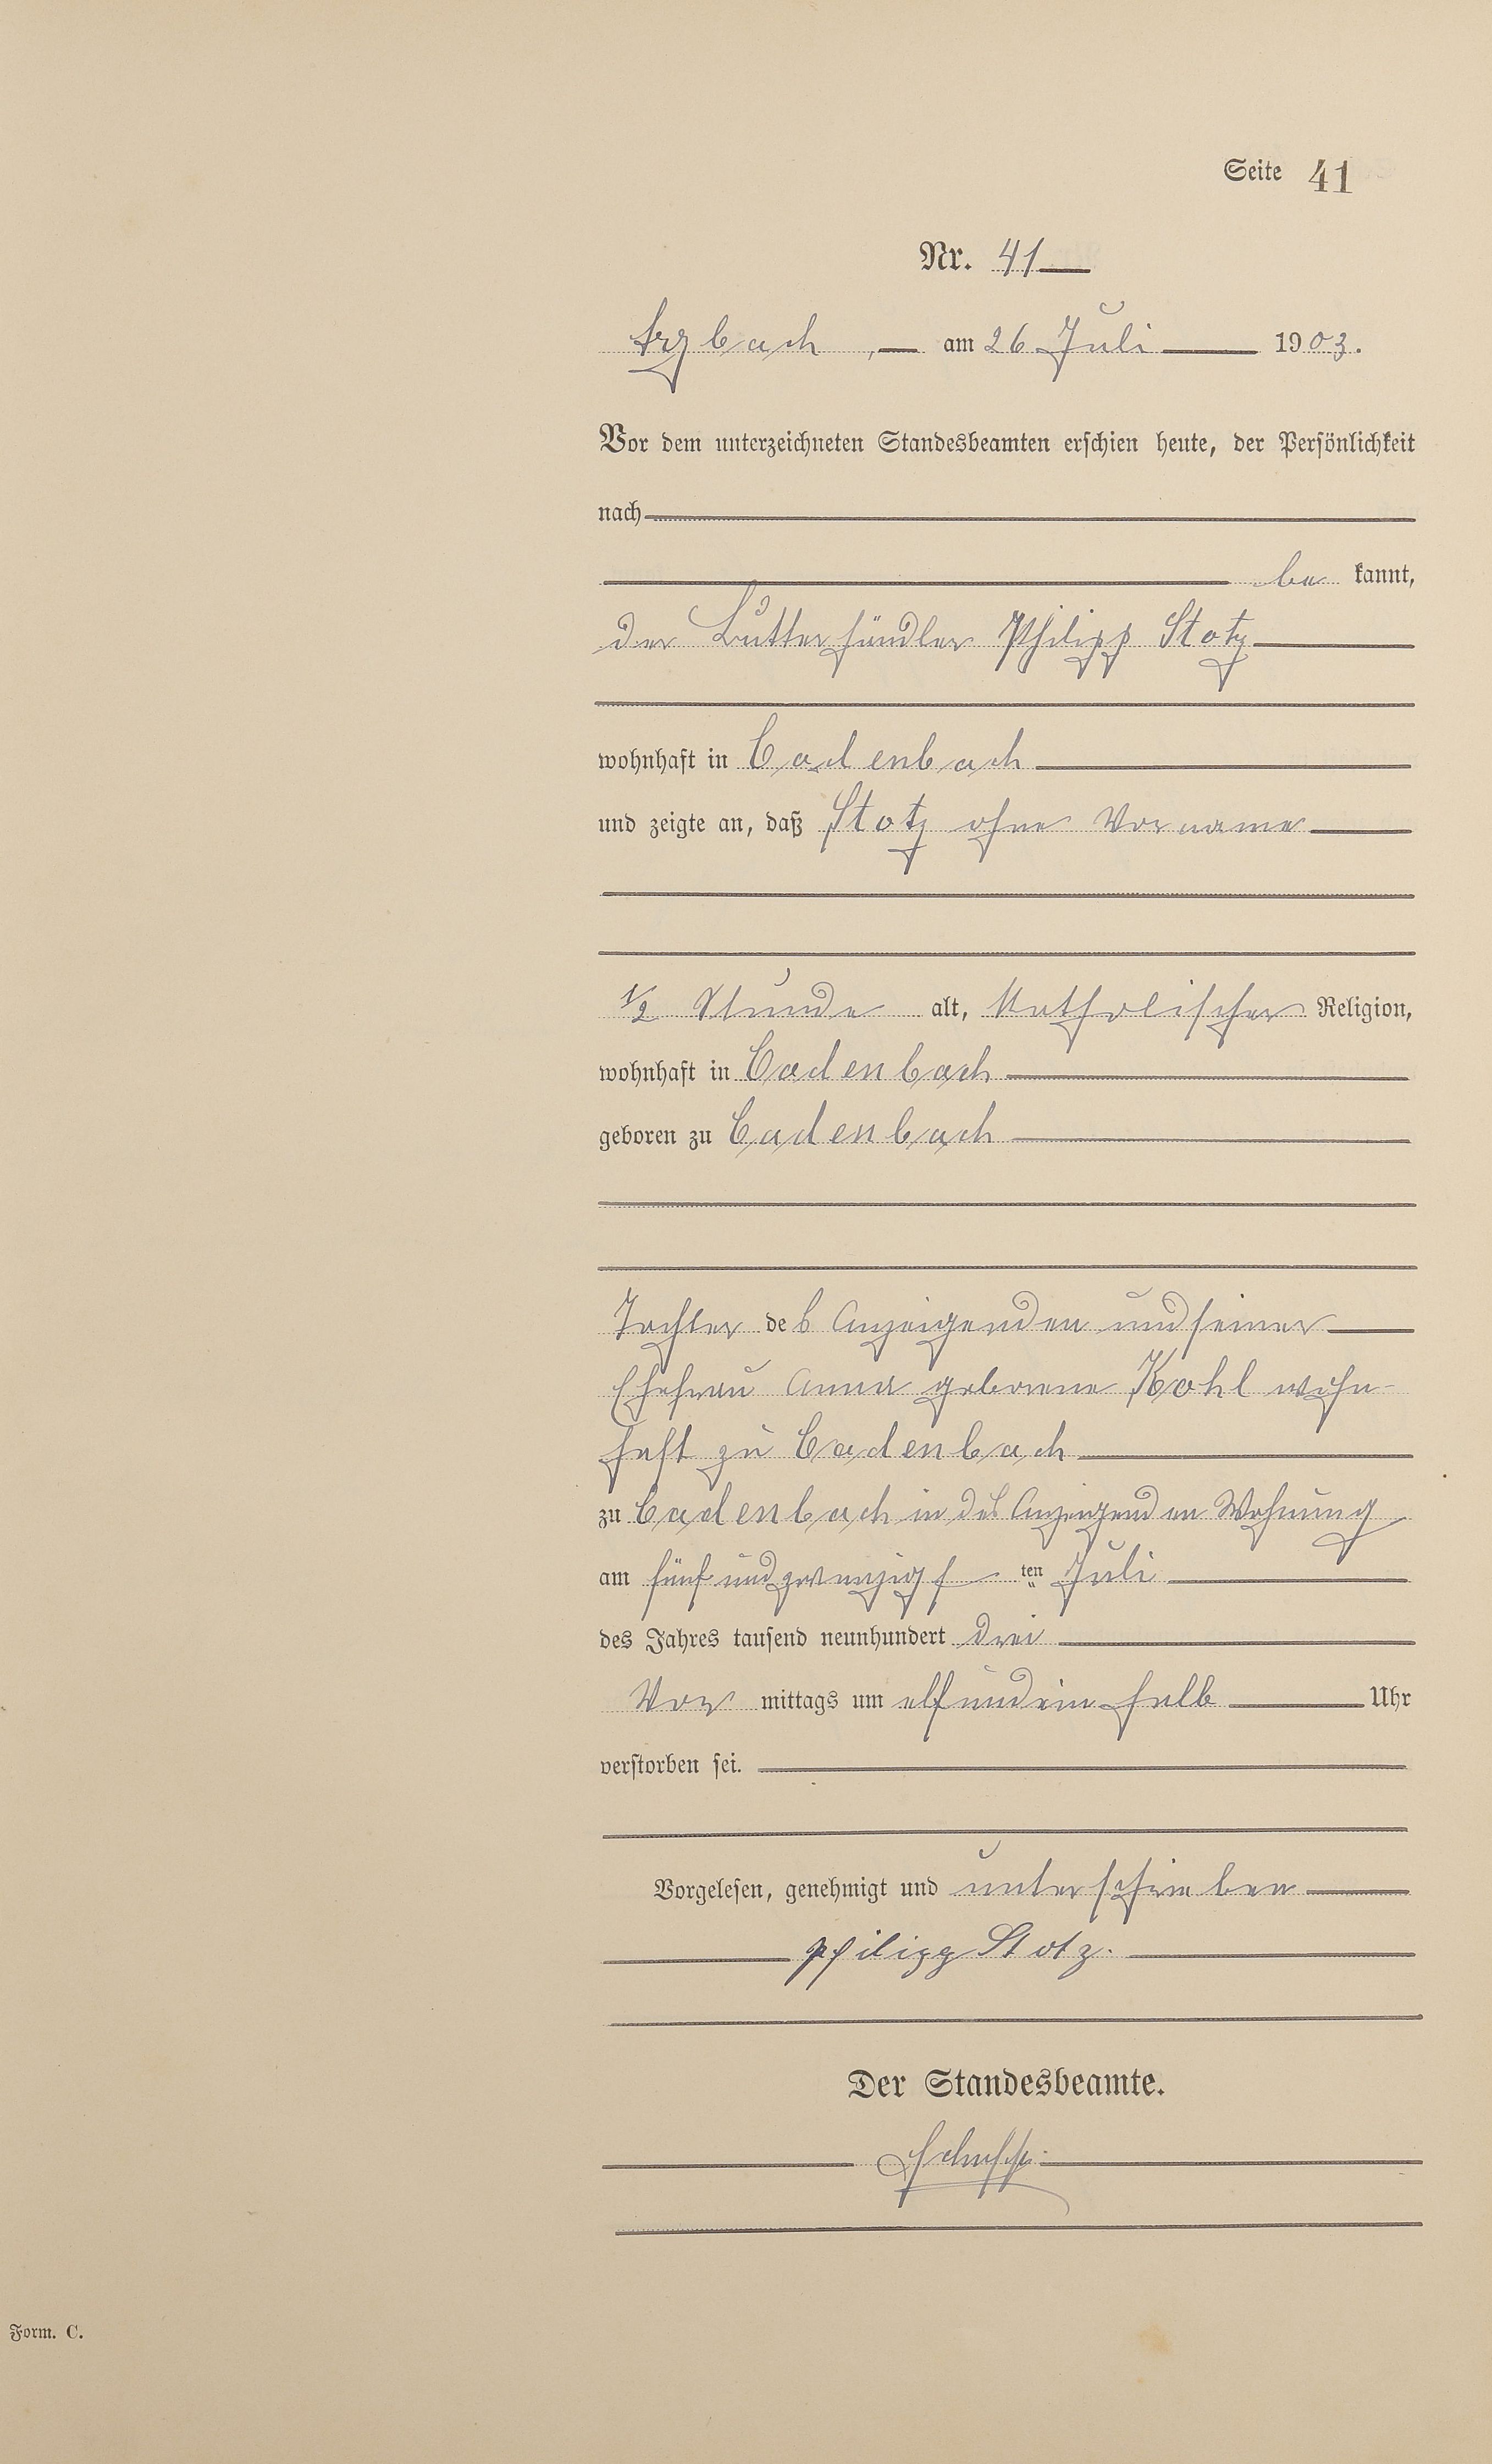 Seite 41
Nr. 41
Arzbach, am 26 Juli 1903.
Vor dem unterzeichneten Standesbeamten erschien heute, der Persönlichkeit
nach
be kannt,
der Butterhändler Philipp Stotz
wohnhaft in Cadenbach
und zeigte an, daß Stotz ohne Vorname
1/2 Stunde alt, Katholischer Religion,
wohnhaft in Cadenbach
geboren zu Cadenbach
Tochter des Anzeigenden und seiner
Ehefrau Anna geborene Kohl wohn-
haft zu Cadenbach
zu Cadenbach in des Anzeigenden Wohnung
am fünf und zwanzigsten Juli
des Jahres tausend neunhundert drei
Vor mittags um elf und ein halb Uhr
verstorben sei.
Vorgelesen, genehmigt und unterschrieben
Philipp Stotz.
Der Standesbeamte.
Form. C.